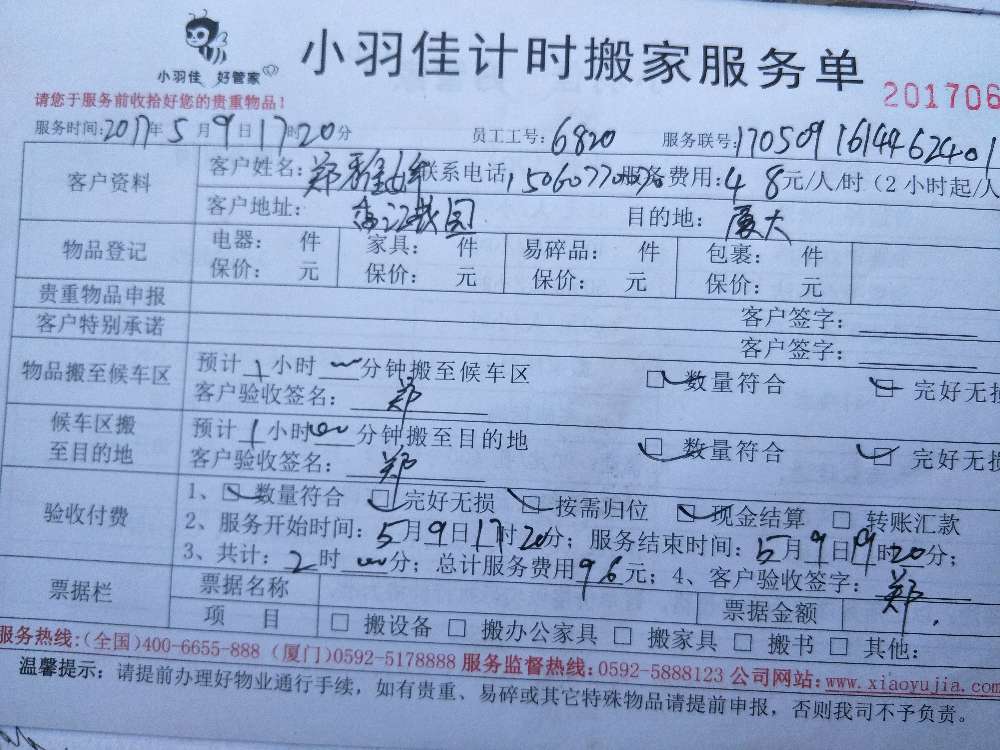 小羽佳 好管家
小羽佳计时搬家服务单
201706
请您于服务前收拾好您的贵重物品！
服务时间:2017年5月9日17时20分 员工工号:6820 服务联号:1705091614462401
客户资料
客户姓名:郑雅 联系电话:1506077 服务费用:48元/人/时（2小时起/人
客户地址: 目的地:厦大
物品登记
电器: 件 家具: 件 易碎品: 件 包裹: 件
保价: 元 保价: 元 保价: 元 保价: 元
贵重物品申报 客户签字:
客户特别承诺 客户签字:
物品搬至候车区
预计1小时 分钟搬至候车区 □数量符合 □完好无损
客户验收签名: 郑
候车区搬
至目的地
预计1小时00分钟搬至目的地 □数量符合 □完好无
客户验收签名: 郑
验收付费
1、□数量符合 □完好无损 □按需归位 □现金结算 □ 转账汇款
2、服务开始时间:5月9日17时20分；服务结束时间:5月9日19时20分；
3、共计:2时00分；总计服务费用96元；4、客户验收签字:郑
票据栏
票据名称 票据金额
项 目 □ 搬设备 □ 搬办公家具 □ 搬家具 □ 搬书 □ 其他:
服务热线:(全国)400-6655-888 (厦门)0592-5178888 服务监督热线:0592-5888123 公司网站:www.xiaoyujia.com
温馨提示: 请提前办理好物业通行手续，如有贵重、易碎或其它特殊物品请提前申报，否则我司不予负责。